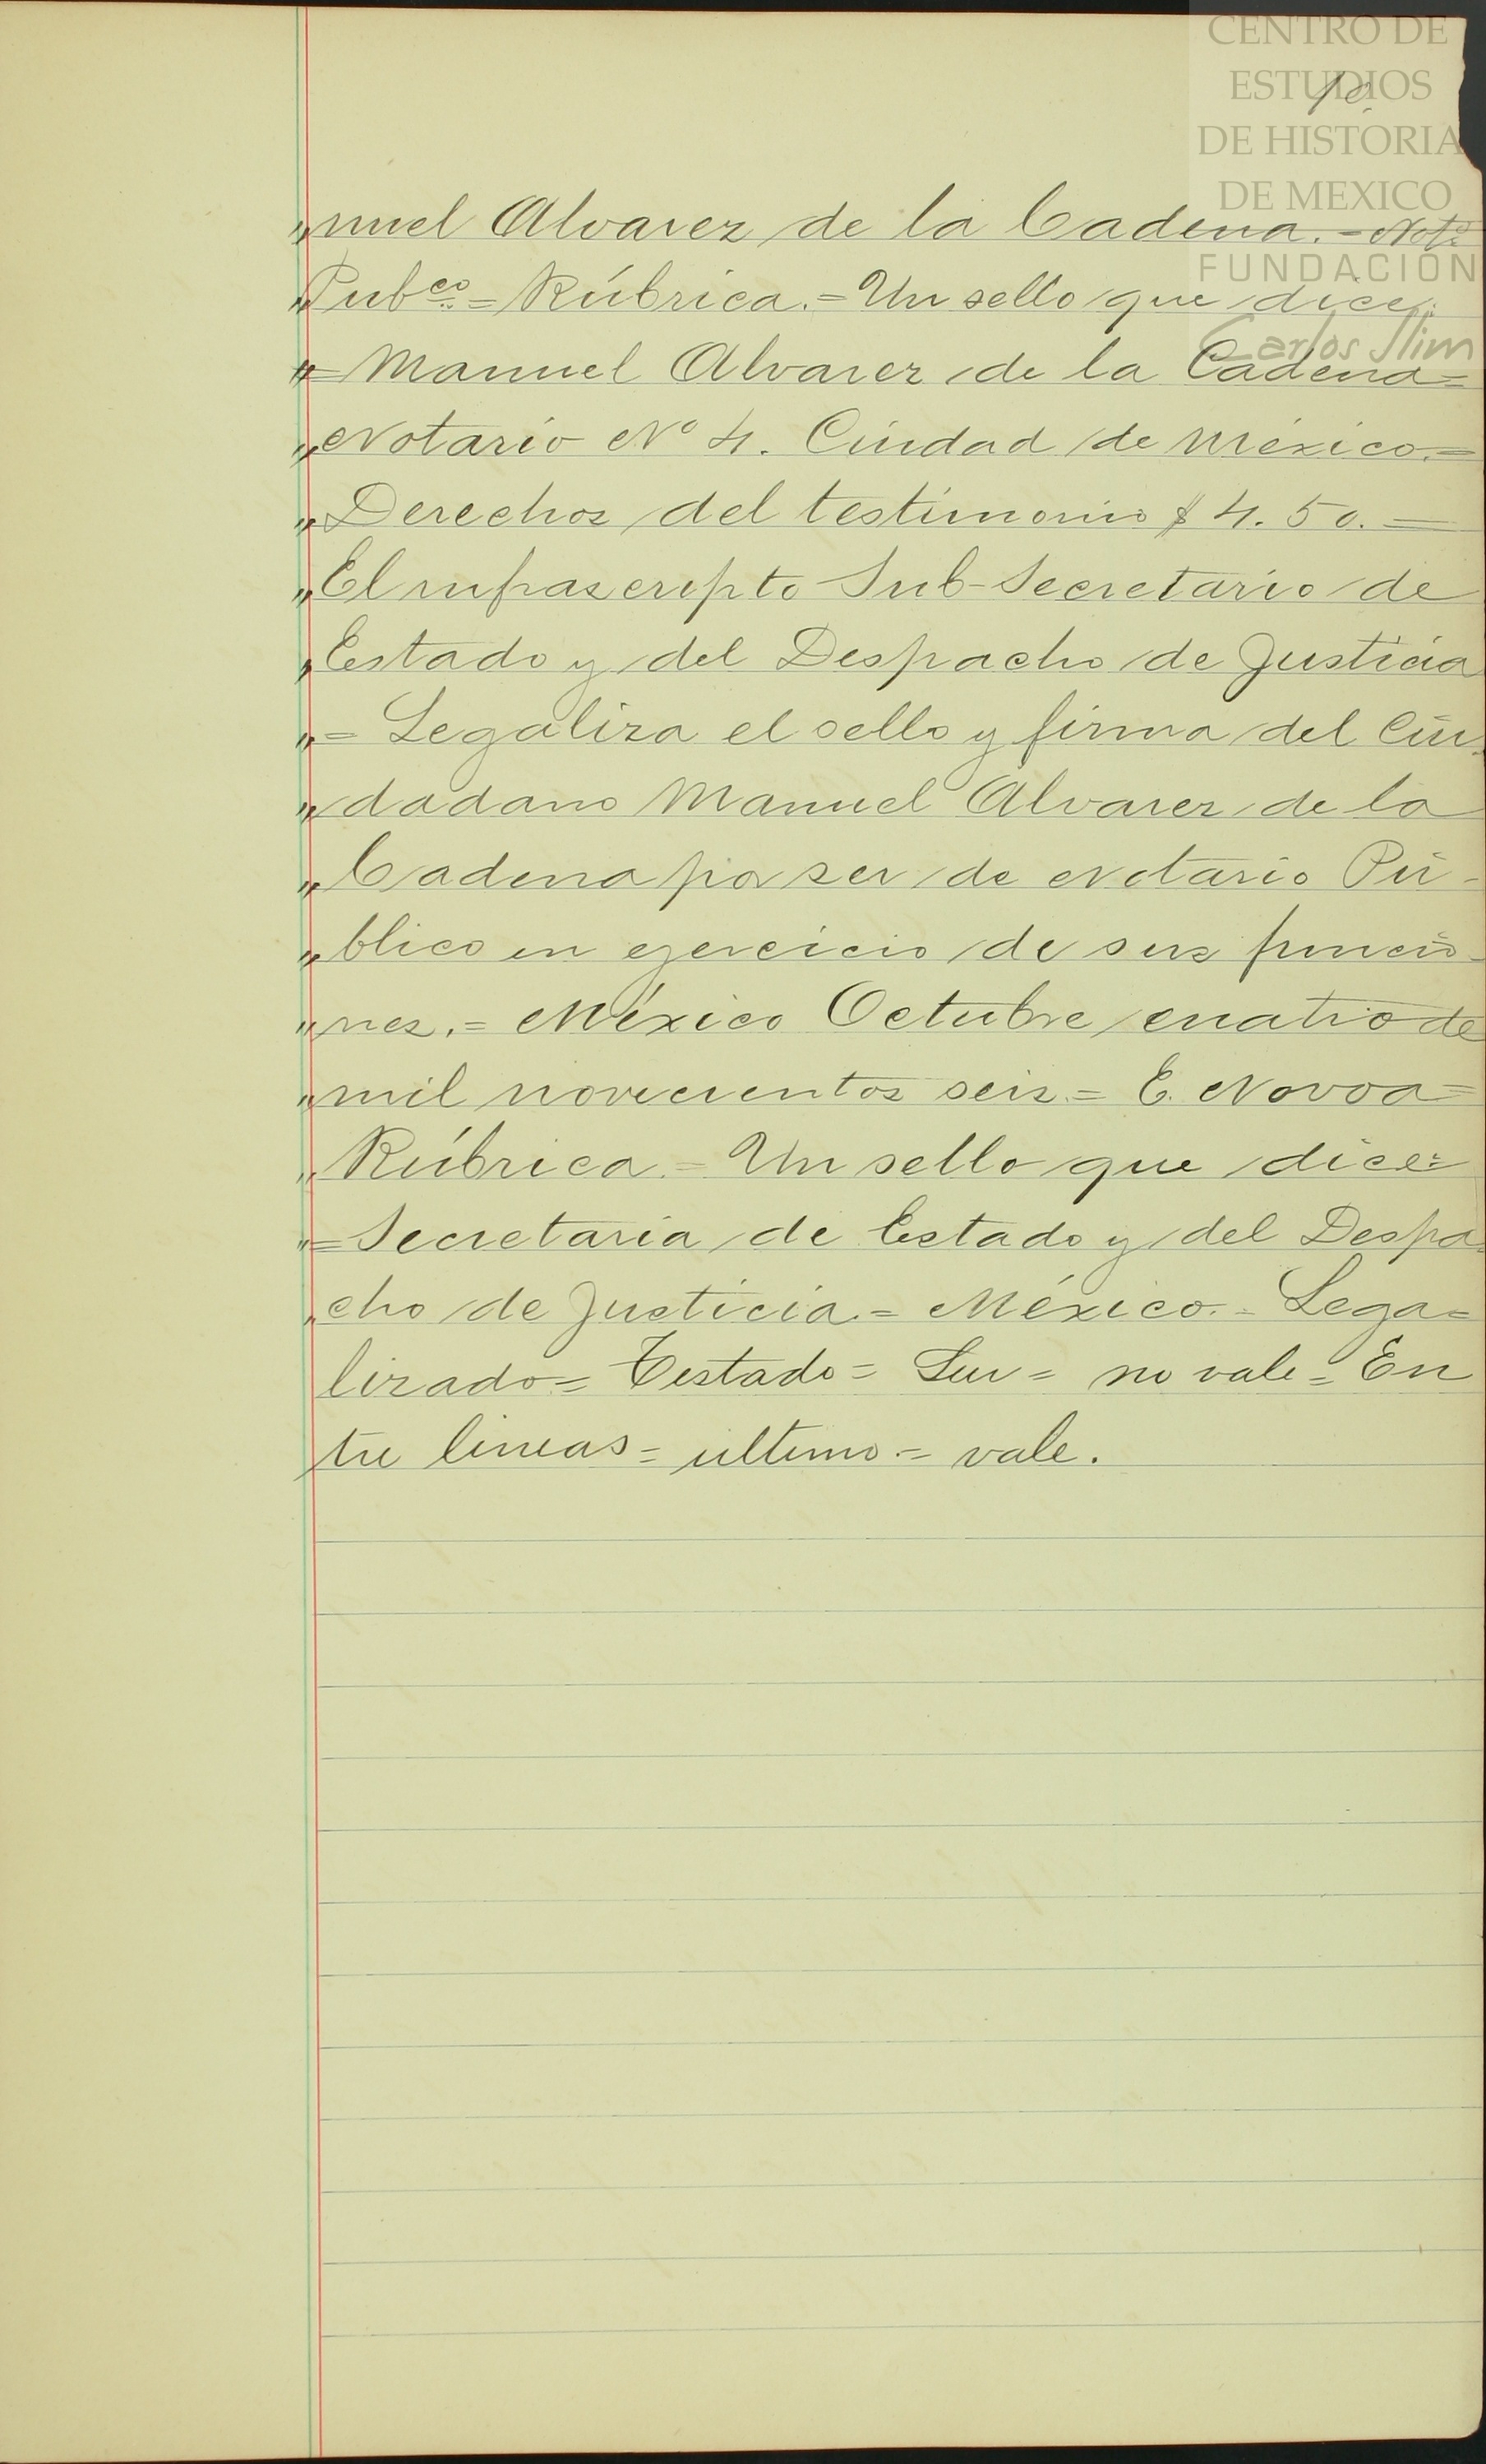 CENTRO DE
ESTUDIOS
DE HISTORIA
DE MEXICO
FUNDACIÓN
Carlos Slim
10.
„nuel Alvarez de la Cadena.=Not.º
„Pub.co=Rúbrica.=Un sello que dice:
„=Manuel Alvarez de la Cadena=
„Notario Nº 4. Ciudad de México.=
„Derechos del testimonio $ 4.50.=
„El infrascripto Sub-Secretario de
„Estado y del Despacho de Justicia
„=Legaliza el sello y firma del Ciu-
„dadano Manuel Alvarez de la
„Cadena por ser de Notario Pú-
„blico en ejercicio de sus funcio-
„nes.=México Octubre cuatro de
„mil novecientos seis.=E. Novoa=
„Rúbrica.=Un sello que dice:
„=Secretaria de Estado y del Despa-
„cho de Justicia.=México.=Lega=
lizado=Testado=Sur=no vale=En
tre lineas=ultimo=vale.